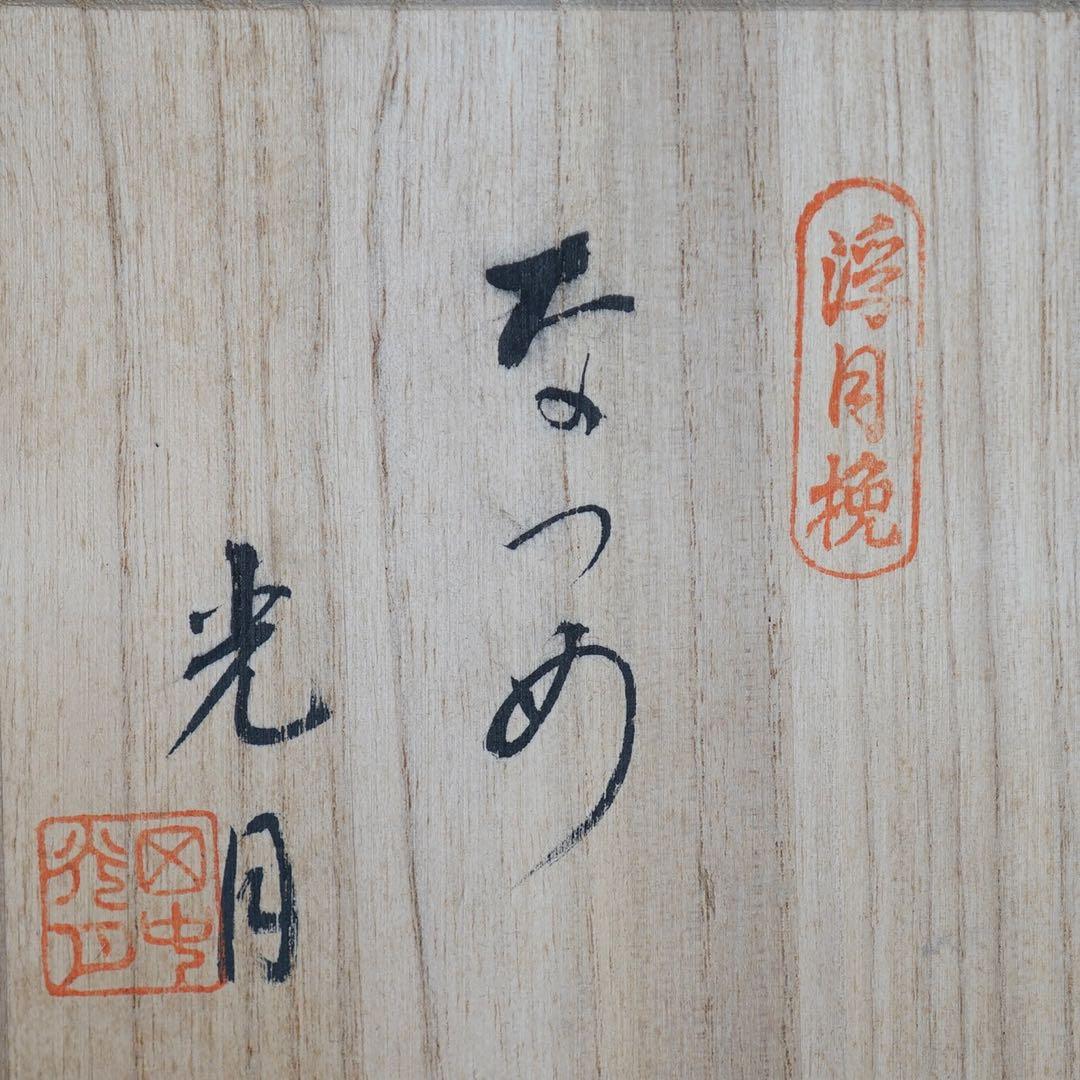 浮月挽
なつめ
光月